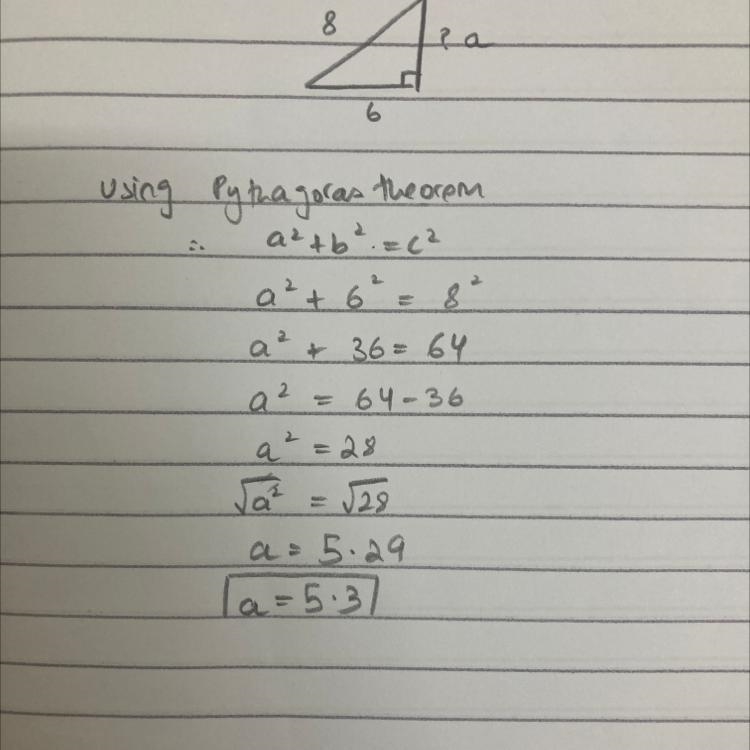 8
? a
6
Using Pythagoras theorem
∴ a² + b² = c²
a² + 6² = 8²
a² + 36 = 64
a² = 64 - 36
a² = 28
√a² = √28
a = 5.29
a = 5.3